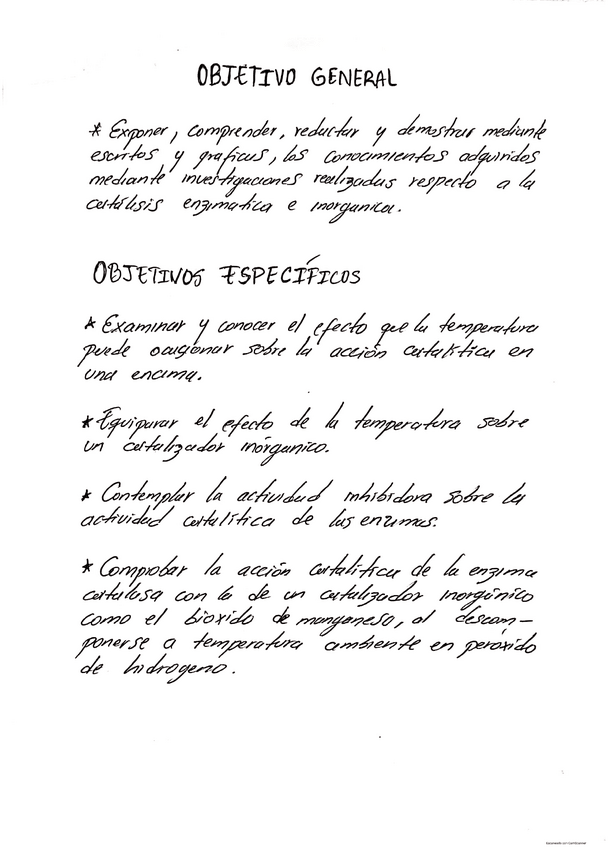 OBJETIVO GENERAL
* Exponer, comprender, redactar y demostrar mediante
escritos y graficas, los conocimientos adquiridos
mediante investigaciones realizadas respecto a la
catálisis enzimatica e inorganica.
OBJETIVOS ESPECÍFICOS
* Examinar y conocer el efecto que la temperatura
puede ocasionar sobre la acción catalítica en
una encima.
* Equiparar el efecto de la temperatura sobre
un catalizador inórganico.
* Contemplar la actividad inhibidora sobre la
actividad catalítica de las enzimas.
* Comprobar la acción catalitica de la enzima
catalasa con la de un catalizador inorgánico
como el bioxido de manganeso, al descom-
ponerse a temperatura ambiente en peróxido
de hidrogeno.
Escaneado con CamScanner